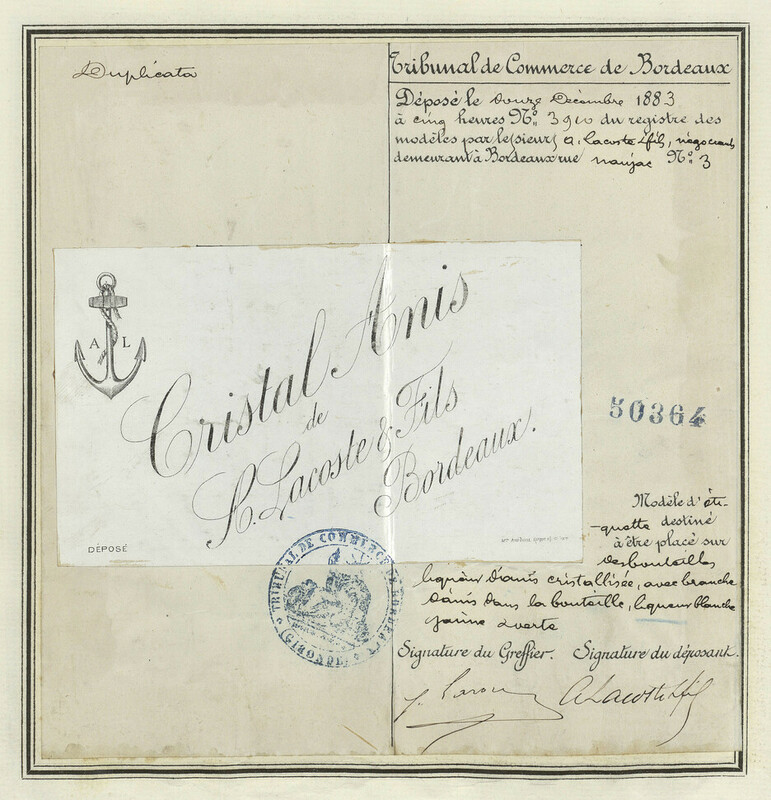 Duplicata
Tribunal de Commerce de Bordeaux
Déposé le douze Décembre 1883
à cinq heures N° 3910 du registre des
modèles par le sieurs A. Lacoste & fils, négociants
demeurant à Bordeaux rue naujac N° 3
A L
Cristal Anis
de
A. Lacoste & Fils
Bordeaux.
DÉPOSÉ
50364
Modèle d'éti-
-quette destiné
à être placé sur
des bouteilles
liqueur d'anis cristallisée, avec branche
d'anis dans la bouteille, liqueur blanche
jaune & verte
TRIBUNAL DE COMMERCE DE BORDEAUX
(GIRONDE)
Signature du Greffier. Signature du déposant.
A Lacoste & fils